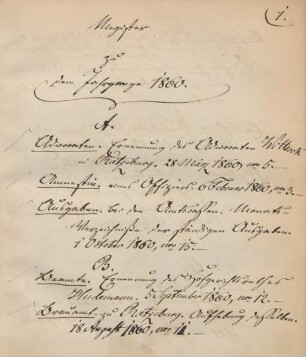 1.
Register
zu
dem Jahrgange 1860.
A.
Advocaten. Ernennung des Advocaten
in Ratzeburg. 28 März 1860, no 5.
Amnestie eines Offiziers 6 Februar 1860, no 3.
Ausgaben. bei den Amtscassen. Monats-
Verzeichnisse der ständigen Ausgaben.
1 October 1860, no 15.
B.
Beamte. Ernennung des Hofgerichtsrathes
5. September 1860, no 12.
Brauamt. zu Ratzeburg. Aufhebung desselben.
18 August 1860, no 11.